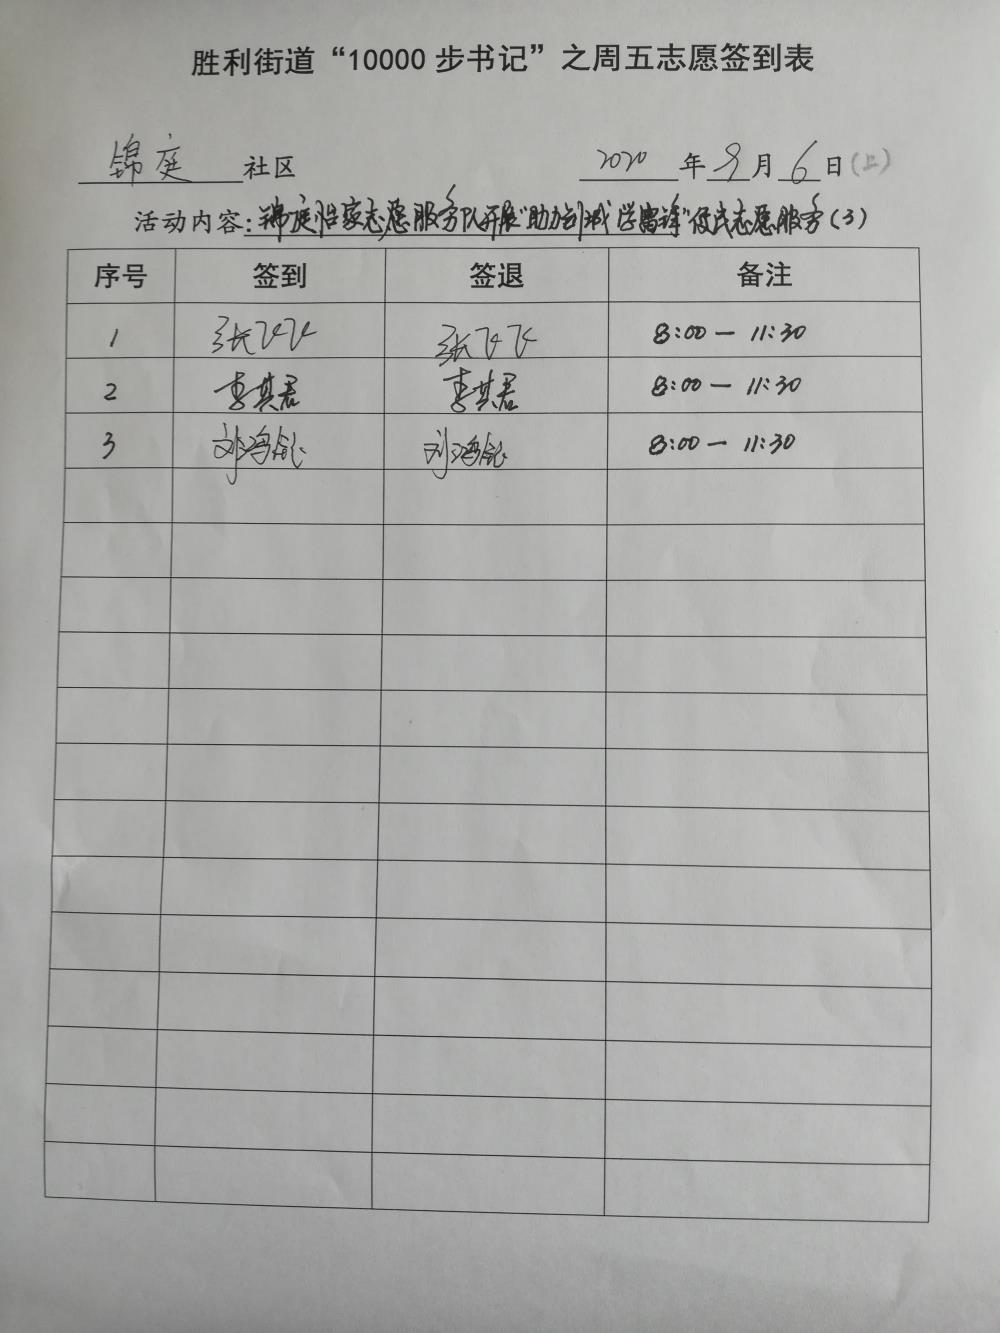 胜利街道“10000步书记”之周五志愿签到表
锦庭 社区 2020 年 9 月 6 日(上)
活动内容:锦庭怡家志愿服务队开展“助力创城 学雷锋”便民志愿服务(3)
序号 签到 签退 备注
1 张飞飞 张飞飞 8:00 — 11:30
2 李其君 李其君 8:00 — 11:30
3 刘鸿 刘鸿 8:00 — 11:30